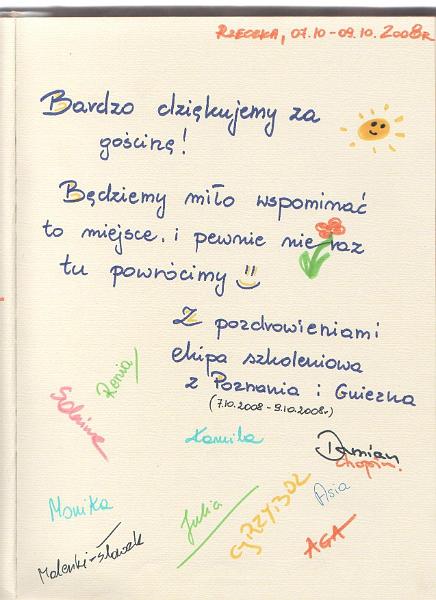 RZECZKA, 07.10 - 09.10.2008r
Bardzo dziękujemy za
gościnę!
Będziemy miło wspominać
to miejsce, i pewnie nie raz
tu powrócimy
Z pozdrowieniami
ekipa szkoleniowa
z Poznania i Gniezna
(7.10.2008 - 9.10.2008r)
Renia
Kamila
Damian
chopin!
Monika
Julia
GRZYBOL
Asia
AGA
Malenki-sławek